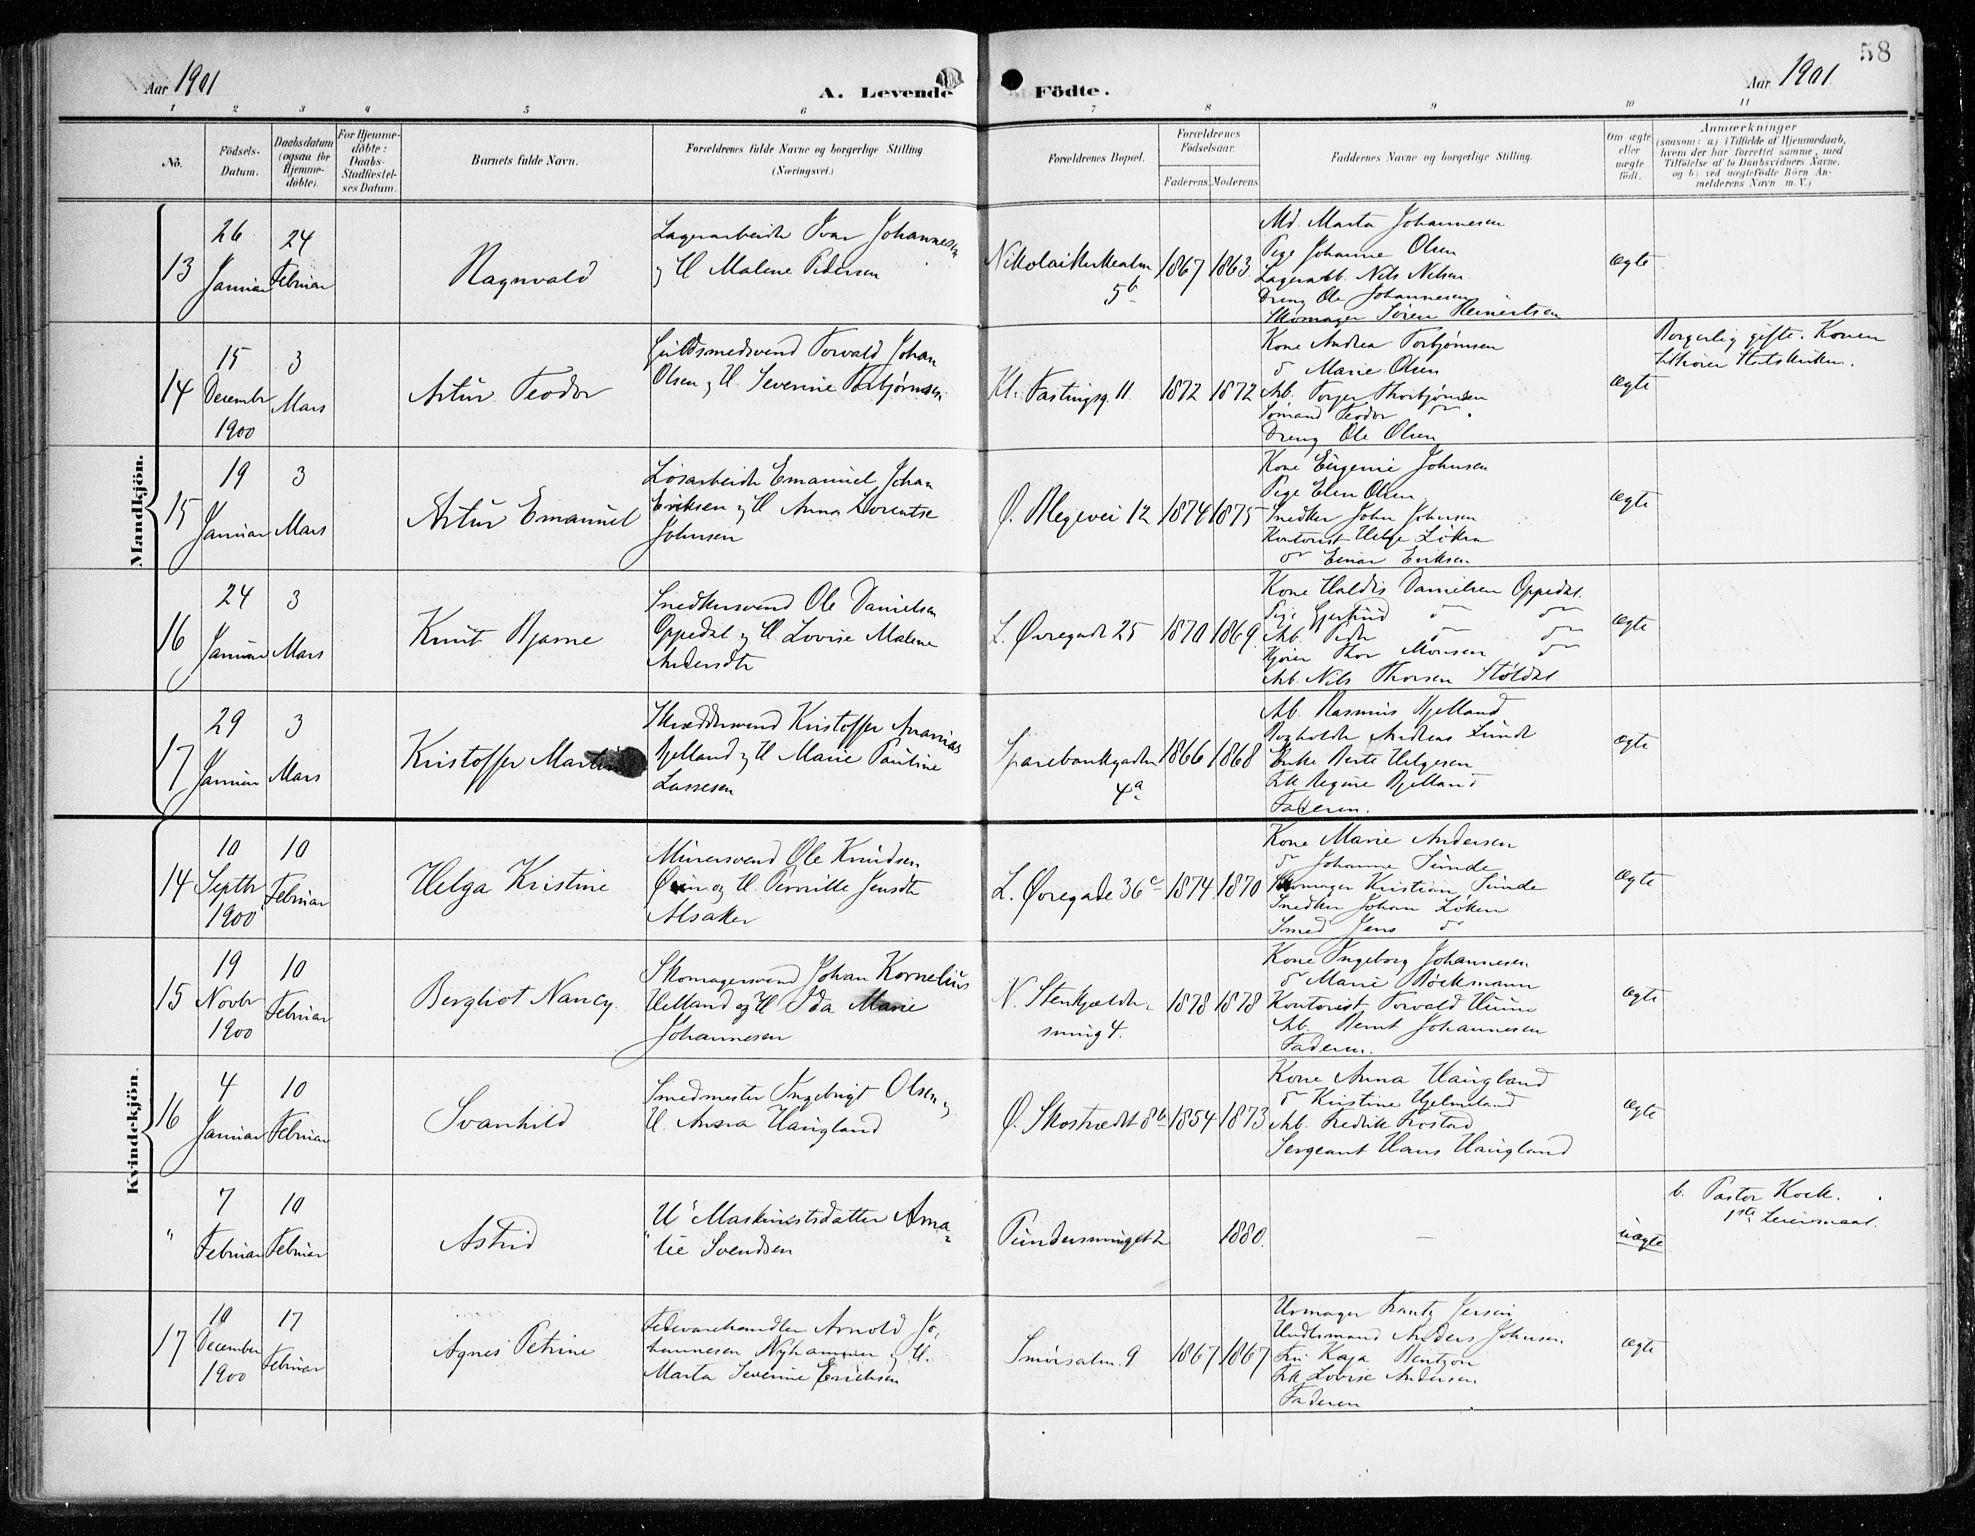 58
Aar 1901
A. Levende Födte.
Aar 1901.
1 2 3 4 5 6 7 8 9 10 11
No.
Födsels-Datum.
Daabsdatum (ogsaa for Hjemme-döbte).
For Hjemme-döbte: Daabs-Stadfæstel-ses Datum.
Barnets fulde Navn.
Forældrenes fulde Navne og borgerlige Stilling
(Næringsvei.)
Forældrenes Bopæl.
Forældrenes Födselsaar.
Faderens. Moderens.
Faddernes Navne og borgerlige Stilling.
Om ægte eller uægte födt.
Anmærkninger
(saasom: a) i Tilfælde af Hjemmedaab,
hvem der har forrettet samme, med
Tilföielse af to Daabsvidners Navne,
og b) ved uægtefödte Börn An-
melderens Navn m. V.)
Mandkjön.
13
26 Januar
24 Februar
Ragnvald
Lagerarbeider Ivar Johannesen
og H. Malene Pedersen
Nikolaikirkealm. 5b
1867 1863
Md. Marta Johannesen
Pige Johanne Olsen
Lagerarb. Nils Nilsen
Dreng Ole Johannesen
Skomager Sören Reinertsen
ægte
14
15 Decembr 1900
3 Mars
Artur Teodor
Guldsmedsvend Torvald Johan
Olsen og H. Severine Torbjørnsen
Kl. Fastingsg. 11.
1872 1872
Kone Andrea Torbjørnsen
do Marie Olsen
Arb. Torger Thorbjørnsen
Sømand Teodor do.
Dreng Ole Olsen
ægte
Borgerlig gifte. Konen
tilhører Statskirken.
15
19 Januar
3 Mars
Artur Emanuel
Løsarbeider Emanuel Johan
Eriksen og H. Anna Lorentse
Johnsen
Ø. Blegevei 12
1874 1875
Kone Eugenie Johnsen
Pige Elen Olsen
Snedker John Johnsen
Kontorist Helge Løken
do Einar Eriksen
ægte
16
24 Januar
3 Mars
Knut Bjarne
Snedkersvend Ole Danielsen
Oppedal og H. Lovise Malene
Andersdtr
L. Øvregade 25
1870 1869
Kone Haldis Danielsen Oppedal.
Pige Gjertrud do do
Arb. Peder do do
Kjører Thor Monsen do
Arb. Nils Thorsen Støldal
ægte
17
29 Januar
3 Mars
Kristoffer Martin
Skræddersvend Kristoffer Ananias
Bjelland og H. Marie Pauline
Lassesen
Sparebankgaden 4a
1866 1868
Arb. Rasmus Bjelland
Bogholder Andreas Lunde
Enke Berte Helgesen
Frk Regine Bjelland
Faderen.
ægte
Kvindekjön.
14
10 Septbr 1900
10 Februar
Helga Kristine
Murersvend Ole Knudsen
og H. Pernille Jensdtr
Alsaker
L. Øvregade 36c
1874 1870
Kone Marie Andersen
do Johanne Sunde
Skomager Kristian Sunde
Snedker Johan Løken
Smed Jens do
ægte
15
19 Novbr 1900
10 Februar
Bergliot Nancy.
Skomagersvend Johan Kornelius
Helland og H. Ida Marie
Johannesen
N. Stenkjelder-
smug 4.
1878 1878
Kone Ingeborg Johannesen
do Marie Bøckmann
Kontorist Torvald
Arb. Bernt Johannesen
Faderen.
ægte
16
4 Januar
10 Februar
Svanhild
Smedmester Ingebrigt Olsen og
H. Anna Haugland
Ø. Skostrædet 8b
1854 1873
Kone Anna Haugland
do Kristine Hjelmeland
Arb. Fredrik Rostad
Sergeant Hans Haugland
ægte
"
7 Februar
10 Februar
Astrid
U. Maskinistsdatter Ama-
lie Svendsen
Pundersmuget 2
1880.
—
uægte
b. Pastor Kock.
1ste Leiermaal.
17
10 December 1900
17 Februar
Agnes Petrine
Fedevarehandler Arnold Jo-
hannesen Nyhammer og H.
Marta Severine Erichsen
Smørsalm. 9
1867 1867
Urmager Frantz Jensen
Handelsmand Anders Johnsen.
Fru Kaja Bentzon
Frk Lovise Andersen.
Faderen
ægte